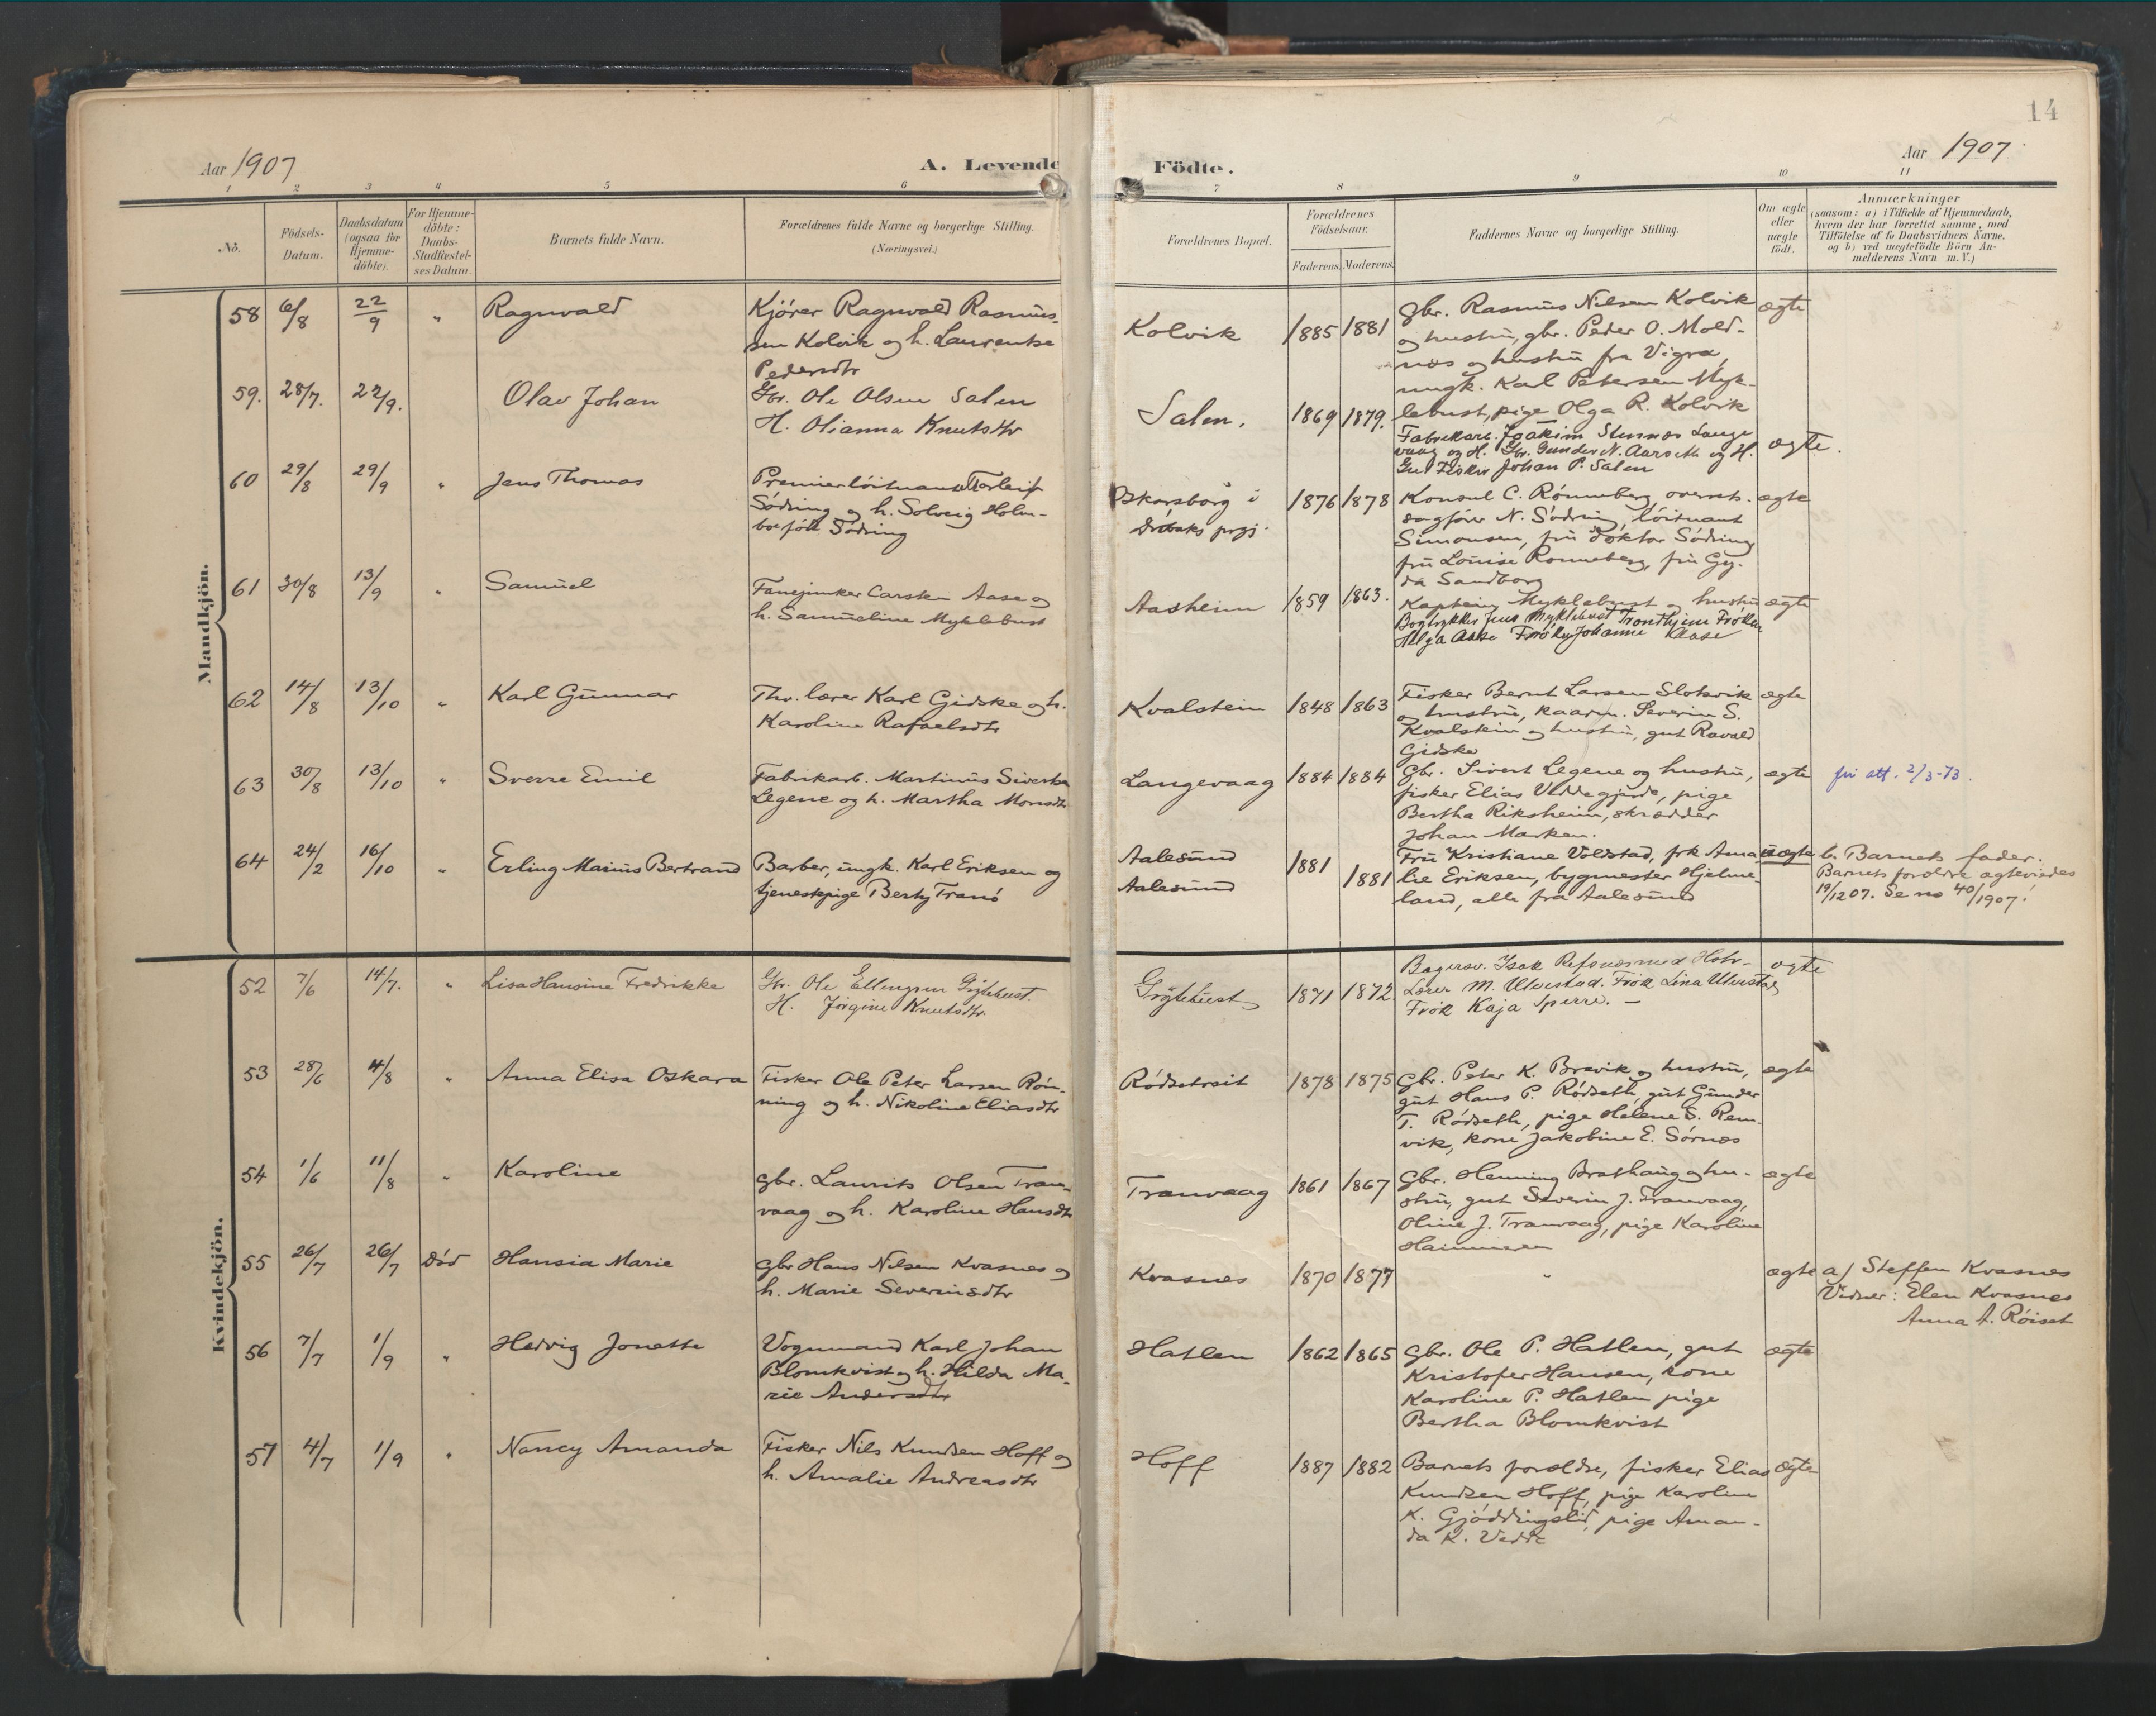 14
Aar 1907
A. Levende
Födte.
Aar 1907
1 2 3 4 5 6
7 8 9 10 11
No.
Födsels-
Datum.
Daabsdatum
(ogsaa for
Hjemme-
döbte).
For Hjemme-
döbte:
Daabs-
Stadfæstel-
ses Datum.
Barnets fulde Navn.
Forældrenes fulde Navne og borgerlige Stilling.
(Næringsvei.)
Forældrenes Bopæl.
Forældrenes
Födselsaar.
Faderens. Moderens.
Faddernes Navne og borgerlige Stilling.
Om ægte
eller
uægte
födt.
Anmærkninger
(saasom: a) i Tilfælde af Hjemmedaab,
hvem der har forrettet samme, med
Tilföielse af to Daabsvidners Navne,
og b) ved uægtefödte Börn An-
melderens Navn m. V.)
Mandkjön.
58 6/8 22/9 " Ragnvald
Kjörer Ragnvald Rasmus-
sen Kolvik og h. Laurentse
Pedersdtr
Kolvik 1885 1881
gbr. Rasmus Nilsen Kolvik
og hustru, gbr. Peder O. Mold-
næs og hustru fra Vigra,
ungk. Karl Petersen Myk-
lebust, pige Olga R. Kolvik
ægte
59. 28/7. 22/9. Olav Johan
Gbr. Ole Olsen Salen
H. Olianna Knutsdtr
Salen. 1869 1879.
Fabrikarb. Joakim Stennes Lange
vaag og H. Gbr. Gunder N. Aarseth og H.
Gut Fisker Johan P. Salen
ægte.
60 29/8 29/9 " Jens Thomas
Premierlöitnant Torleif
Södring og h. Solveig Holm-
boe født Södring
Oskarsborg i
Dröbaks prgj.
1876 1878
Konsul C. Rönneberg, overrets-
sagförer N. Södring, löitnant
Simonsen, fru doktor Södring
fru Louise Ronneberg, fru Gy-
da Sandborg
ægte
61 30/8 13/9 " Samuel
Fanejunker Carsten Aase og
h. Samueline Myklebust
Aasheim 1859 1863.
Kaptein Myklebust og hustru
Bogtrykker Jens Myklebust Trondhjem Fröken
Helga Aase Fröken Johanne Aase
ægte
62 14/8 13/10 " Karl Gunnar
Thv. lærer Karl Gidske og h.
Karoline Rafaelsdtr
Kvalstein 1848 1863
Fisker Bernt Larsen Slotsvik
og hustru, kaarm. Severin S.
Kvalstein og hustru, gut Ravald
Gidske
ægte
63 30/8 13/10 " Sverre Emil
Fabrikarb. Martinus Sivertsen
Legene og h. Martha Monsdtr
Langevaag 1884 1884
gbr. Sivert Legene og hustru,
fisker Elias Veddegjerde, pige
Bertha Riksheim, skrædder
Johan Marken.
ægte
fri att. 2/3-73.
64 24/2 16/10 " Erling Marius Bertrand
Barber, ungk. Karl Eriksen og
tjenestepige Berty Tranö
Aalesund
Aalesund
1881 1881
Fru Kristiane Voldstad, frk Ama-
lie Eriksen, bygmester Hjelme-
land, alle fra Aalesund
uægte
b. Barnets fader.
Barnets forældre ægteviedes
19/12 07. Se no 40/1907!
Kvindekjön.
52 7/6 14/7. " Lisa Hansine Fredrikke
Gbr. Ole Ellengsen Grytebust.
H. Jörgine Knutsdtr.
Grytebust 1871 1872.
Bagersv. Isak Refsnes med Hstr-
Lærer M. Ulvestad. Frök Lina Ulvestad
Frök Kaja Sperre. –
ægte
53 28/6 4/8 " Anna Elisa Oskara
Fisker Ole Peter Larsen Rön-
ning og h. Nikoline Eliasdtr
Rödsetreit 1878 1875
gbr. Peter K. Brevik og hustru,
gut Hans P. Rödseth, gut Gunder
T. Rödseth, pige Helene S. Rem-
vik, kone Jakobine E. Sörnes
ægte
54 1/6 11/8 " Karoline
gbr. Laurits Olsen Tran-
vaag og h. Karoline Hansdtr
Tranvaag 1861 1867
gbr. Henning Brathaug og hu-
stru, gut Severin J. Tranvaag,
Oline J. Tranvaag, pige Karoline
Hammeren
ægte
55 26/7 26/7 Död Hansia Marie
gbr Hans Nilsen Kvasnes og
h. Marie Severinsdtr
Kvasnes 1870 1877 "
ægte
a) Steffen Kvasnes
Vidner: Elen Kvasnes
Anna A. Röiset
56 7/7 1/9 " Hedvig Jonette
Vognmand Karl Johan
Blomkvist og h. Hilda Ma-
rie Andersdtr
Hatlen 1862 1865
gbr. Ole P. Hatlen, gut
Kristofer Hansen, kone
Karoline P. Hatlen pige
Bertha Blomkvist
ægte
57 4/7 1/9 " Nancy Amanda
Fisker Nils Knudsen Hoff og
h. Amalie Andreasdtr
Hoff 1887 1882
Barnets forældre, fisker Elias
Knudsen Hoff, pige Karoline
K. Gjöddingslid, pige Aman-
da K. Vedde
ægte